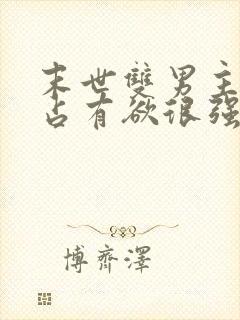 末世雙男主
占有欲很強
博齊澤